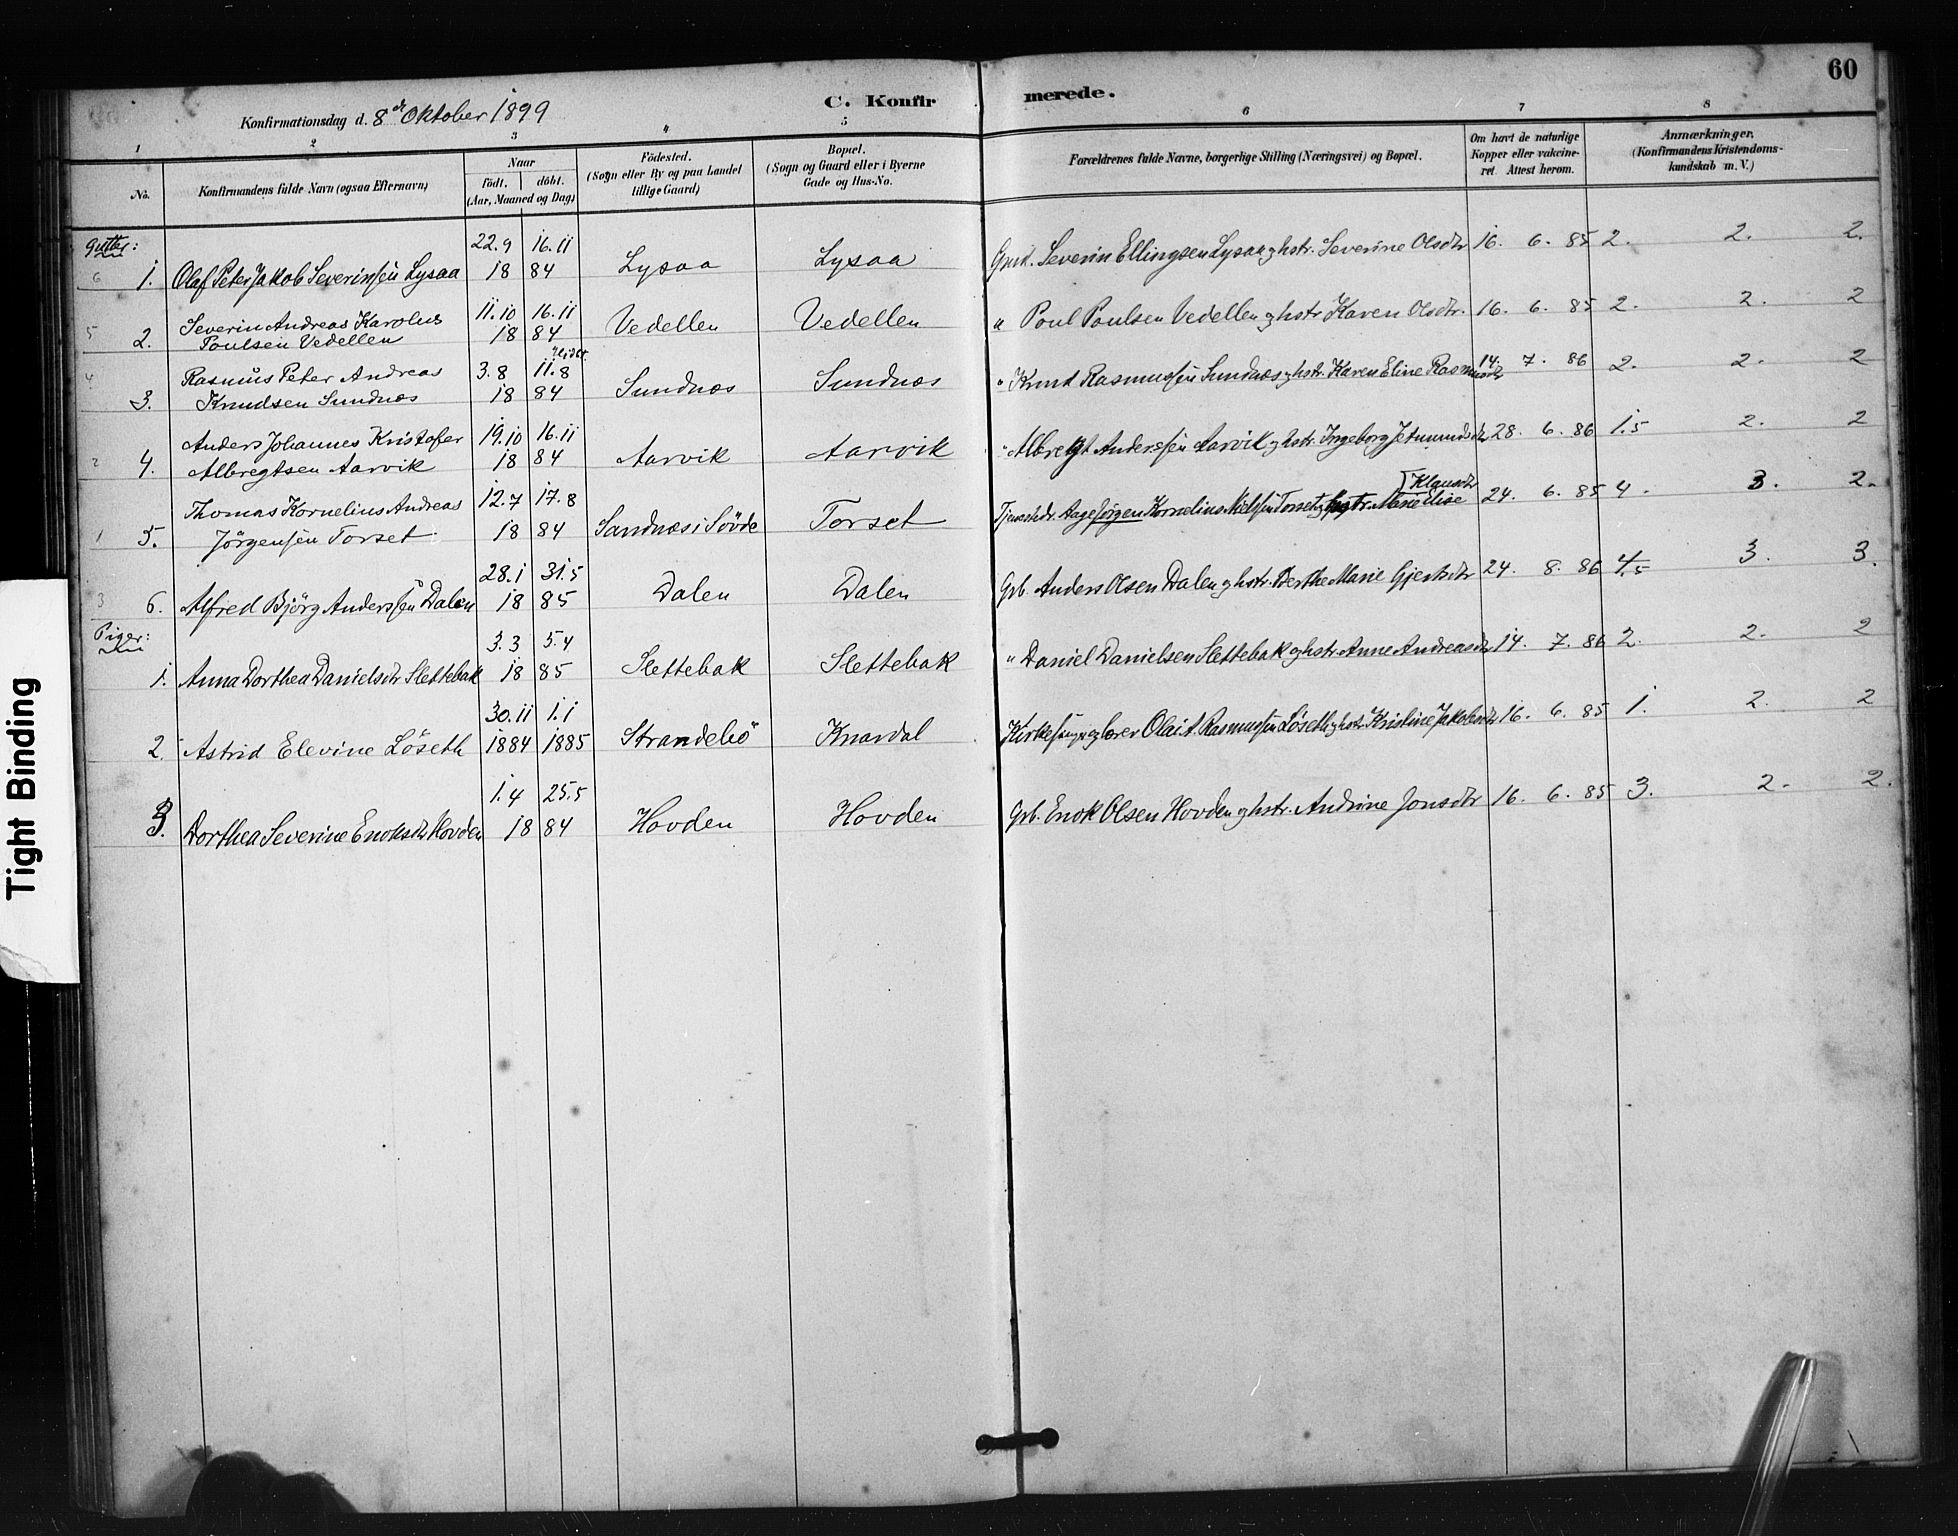 60
Konfirmationsdag d. 8de Oktober 1899
C. Konfirmerede.
1 2 3 " 5 6 7 8
No.
Konfirmandens fulde Navn (ogsaa Efternavn)
Naar
födt. döbt.
(Aar, Maaned og Dag)
Födested.
(Sogn eller By og paa Landet
tillige Gaard)
Bopæl.
(Sogn og Gaard eller i Byerne
Gade og Hus-No.
Forældrenes fulde Navne, borgerlige Stilling (Næringsvei) og Bopæl.
Om havt de naturlige
Kopper eller vakcine-
ret. Attest herom.
Anmærkninger.
(Konfirmandens Kristendoms-
kundskab m. V.)
Gutter:
22.9 16.11
6 1. Olaf Peter Jakob Severinsen Lysaa 18 84 Lysaa Lysaa Gmd. Severin Ellingsen Lysaa og hstr. Severine Olsdtr 16. 6. 85 2. 2. 2.
Severin Andreas Karolus 11.10 16.11
5 2. Poulsen Vedellen 18 84 Vedellen Vedellen " Poul Poulsen Vedellen og hstr Karen Olsdtr. 16. 6. 85 2. 2. 2
Rasmus Peter Andreas 3.8 11.8
4 3. Knudsen Sundnæs 18 84 Sundnæs Sundnæs " Knud Rasmussen Sundnæs og hstr. Karen Eline Rasmusdtr 14. 7. 86 2. 2. 2
Anders Johannes Kristofer 19.10 16.11
2 4. Albregtsen Aarvik 18 84 Aarvik Aarvik " Albregt Anderssen Aarvik og hstr. Ingeborg Jetmundsdtr 28. 6. 86 1.5 2. 2
Thomas Kornelius Andreas 12.7 17.8
1 5. Jörgensen Torset 18 84 Sandnæs i Sövde Torset Aage Jörgen Kornelius Nielssen Torset og hstr. Marie Elise Klausdtr 24. 6. 85 4. 3. 2.
28.1 31.5
3 6. Alfred Bjørg Anderssen Dalen 18 85 Dalen Dalen Grb. Anders Olsen Dalen og hstr. Berthe Marie Gjertsdtr 24. 8. 86 4.5 3. 3.
Piger:
3.3 5.4
1. Anna Dorthea Danielsdtr Slettebak 18 85 Slettebak Slettebak " Daniel Danielsen Slettebak og hstr. Anne Andreasdtr 14. 7. 86 2. 2. 2
30.11 1.1
2. Astrid Elevine Löseth 1884 1885 Strandebö Knardal Kirkesanger og lærer Olai A. Rasmussen Löseth og hstr. Kristine Jakobsdtr 16. 6. 85 1. 2. 2
1.4 25.5
3. Dorthea Severine Enoksdtr Hovden 18 84 Hovden Hovden Grb. Enok Olsen Hovden og hstr. Andrine Jonsdtr 16. 6. 85 3. 2. 2.
Tight Binding